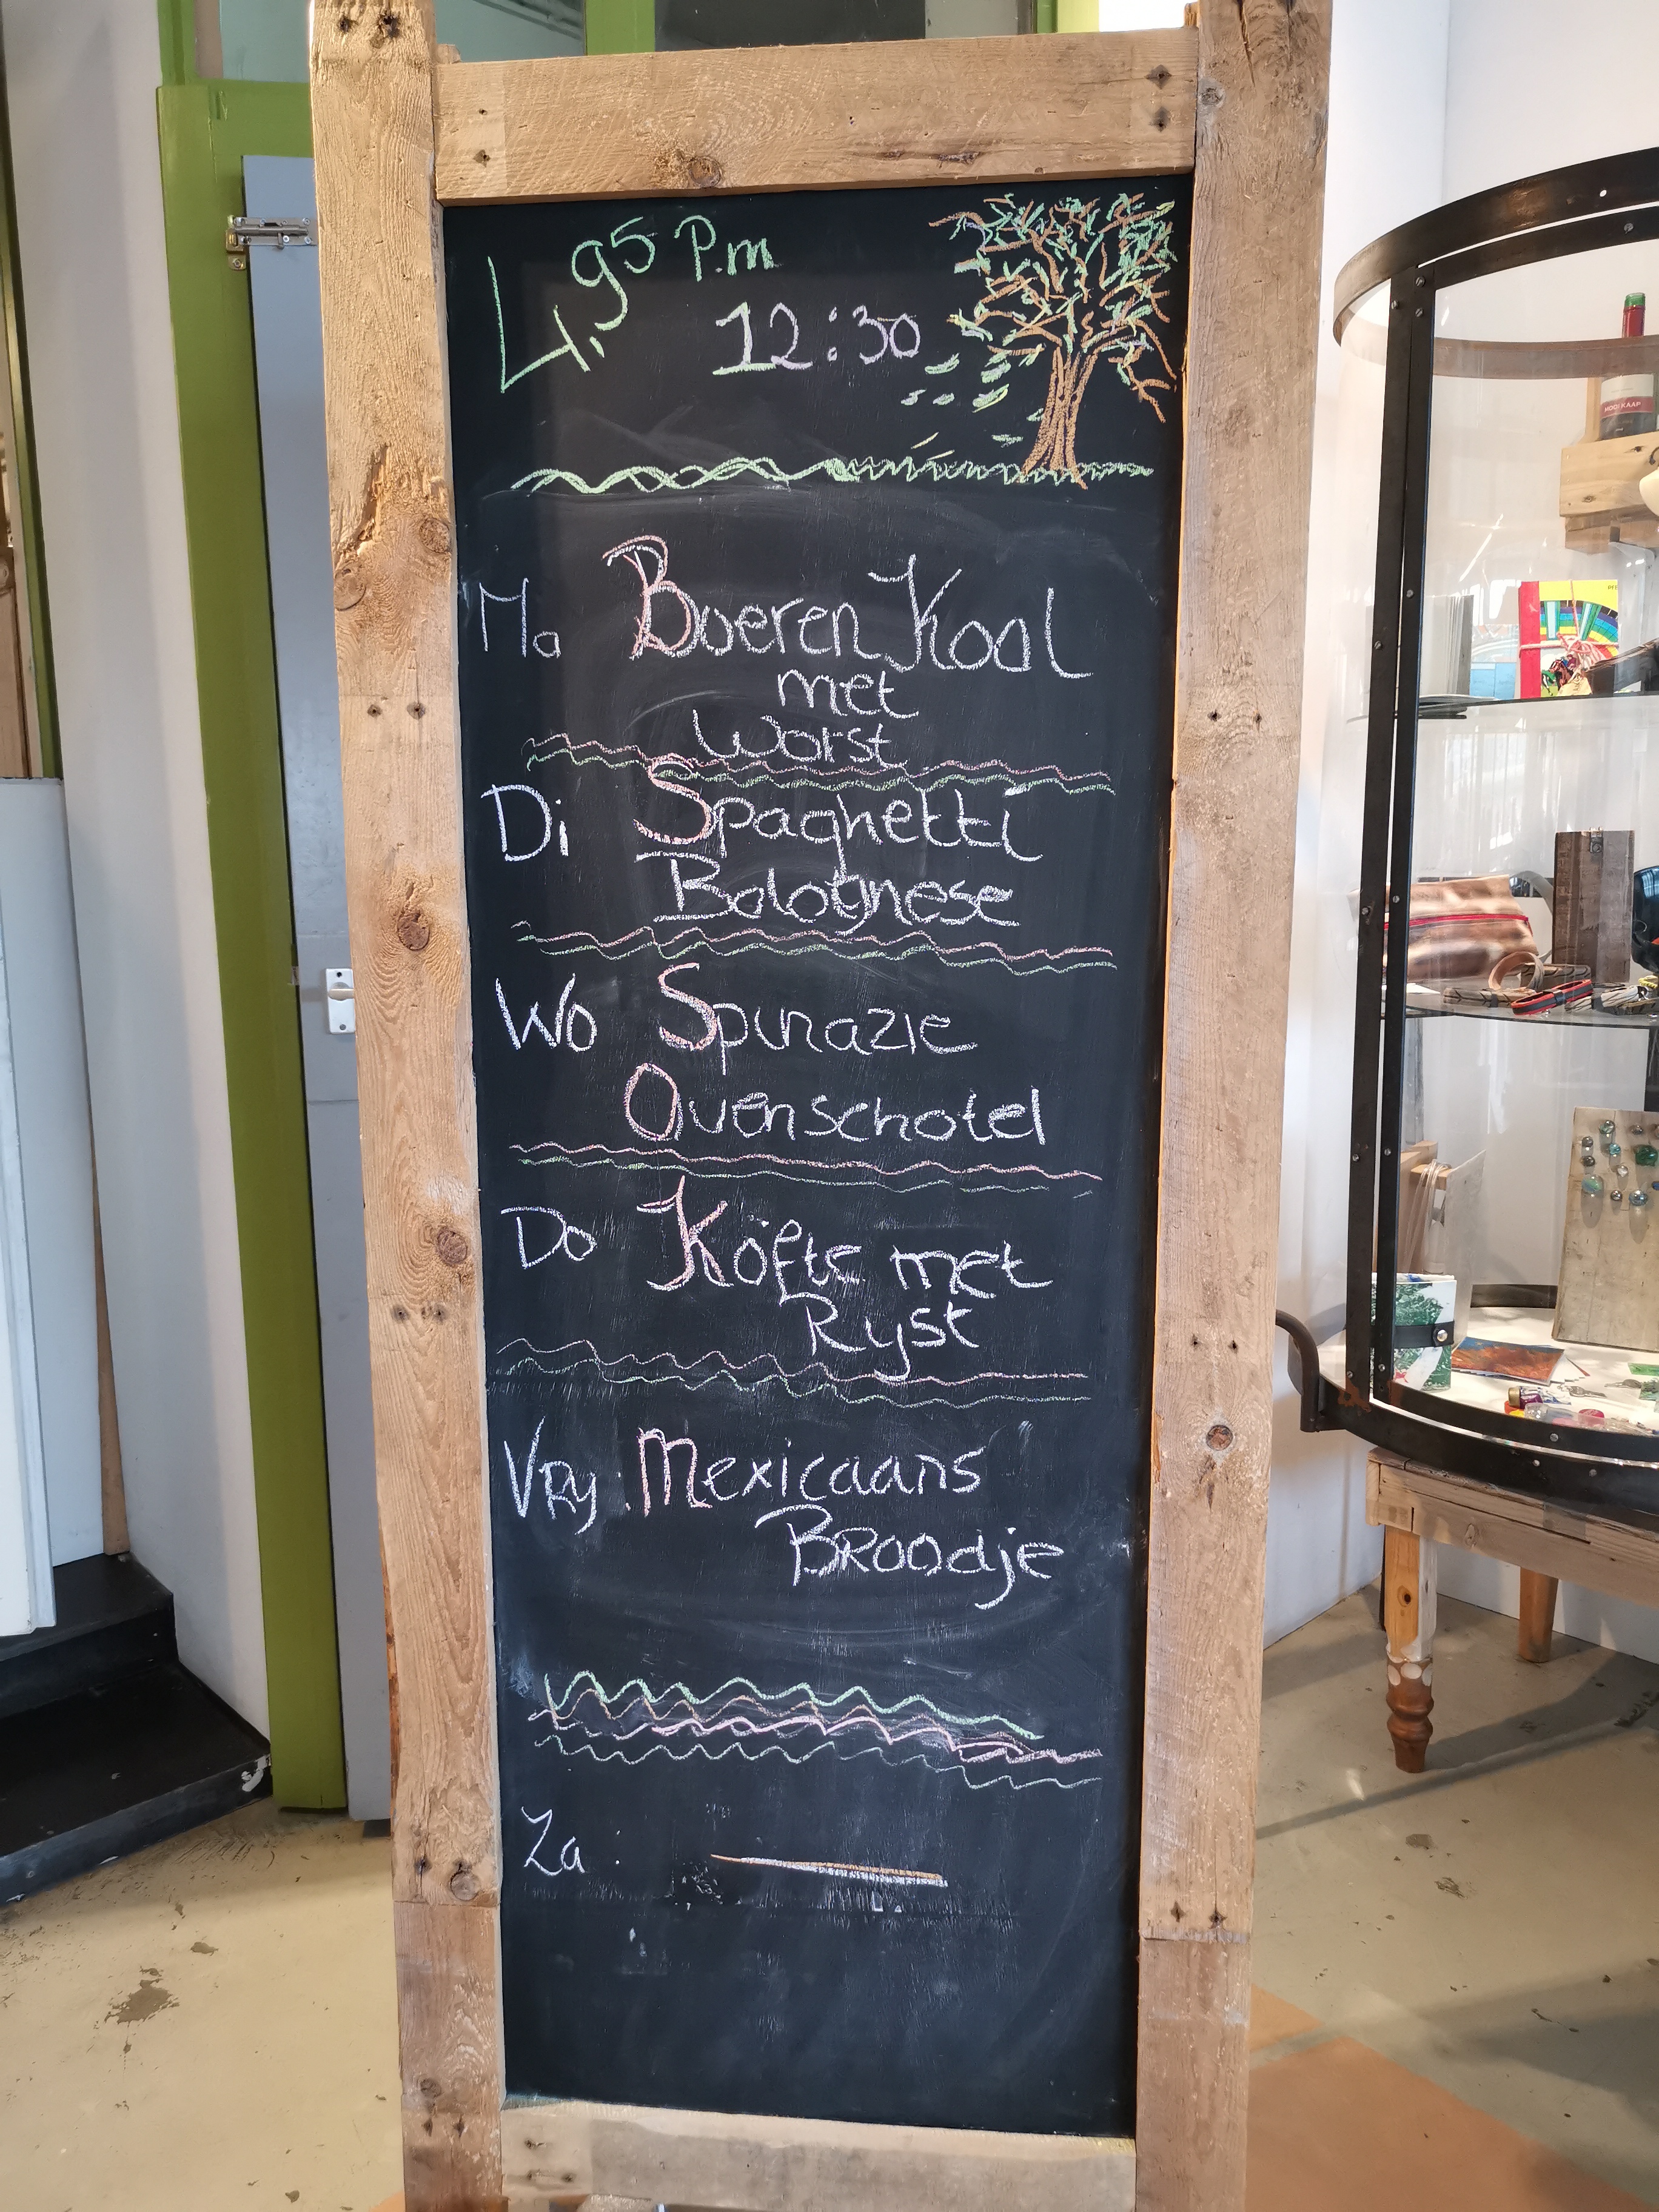 4,95 P.m
12:30
Ma Boeren Kool
met
Worst
Di Spaghetti
Bolognese
Wo Spinazie
Ovenschotel
Do Köfte met
Ryst
Vry: Mexicaans
Broodje
Za :
HOOI KAAP